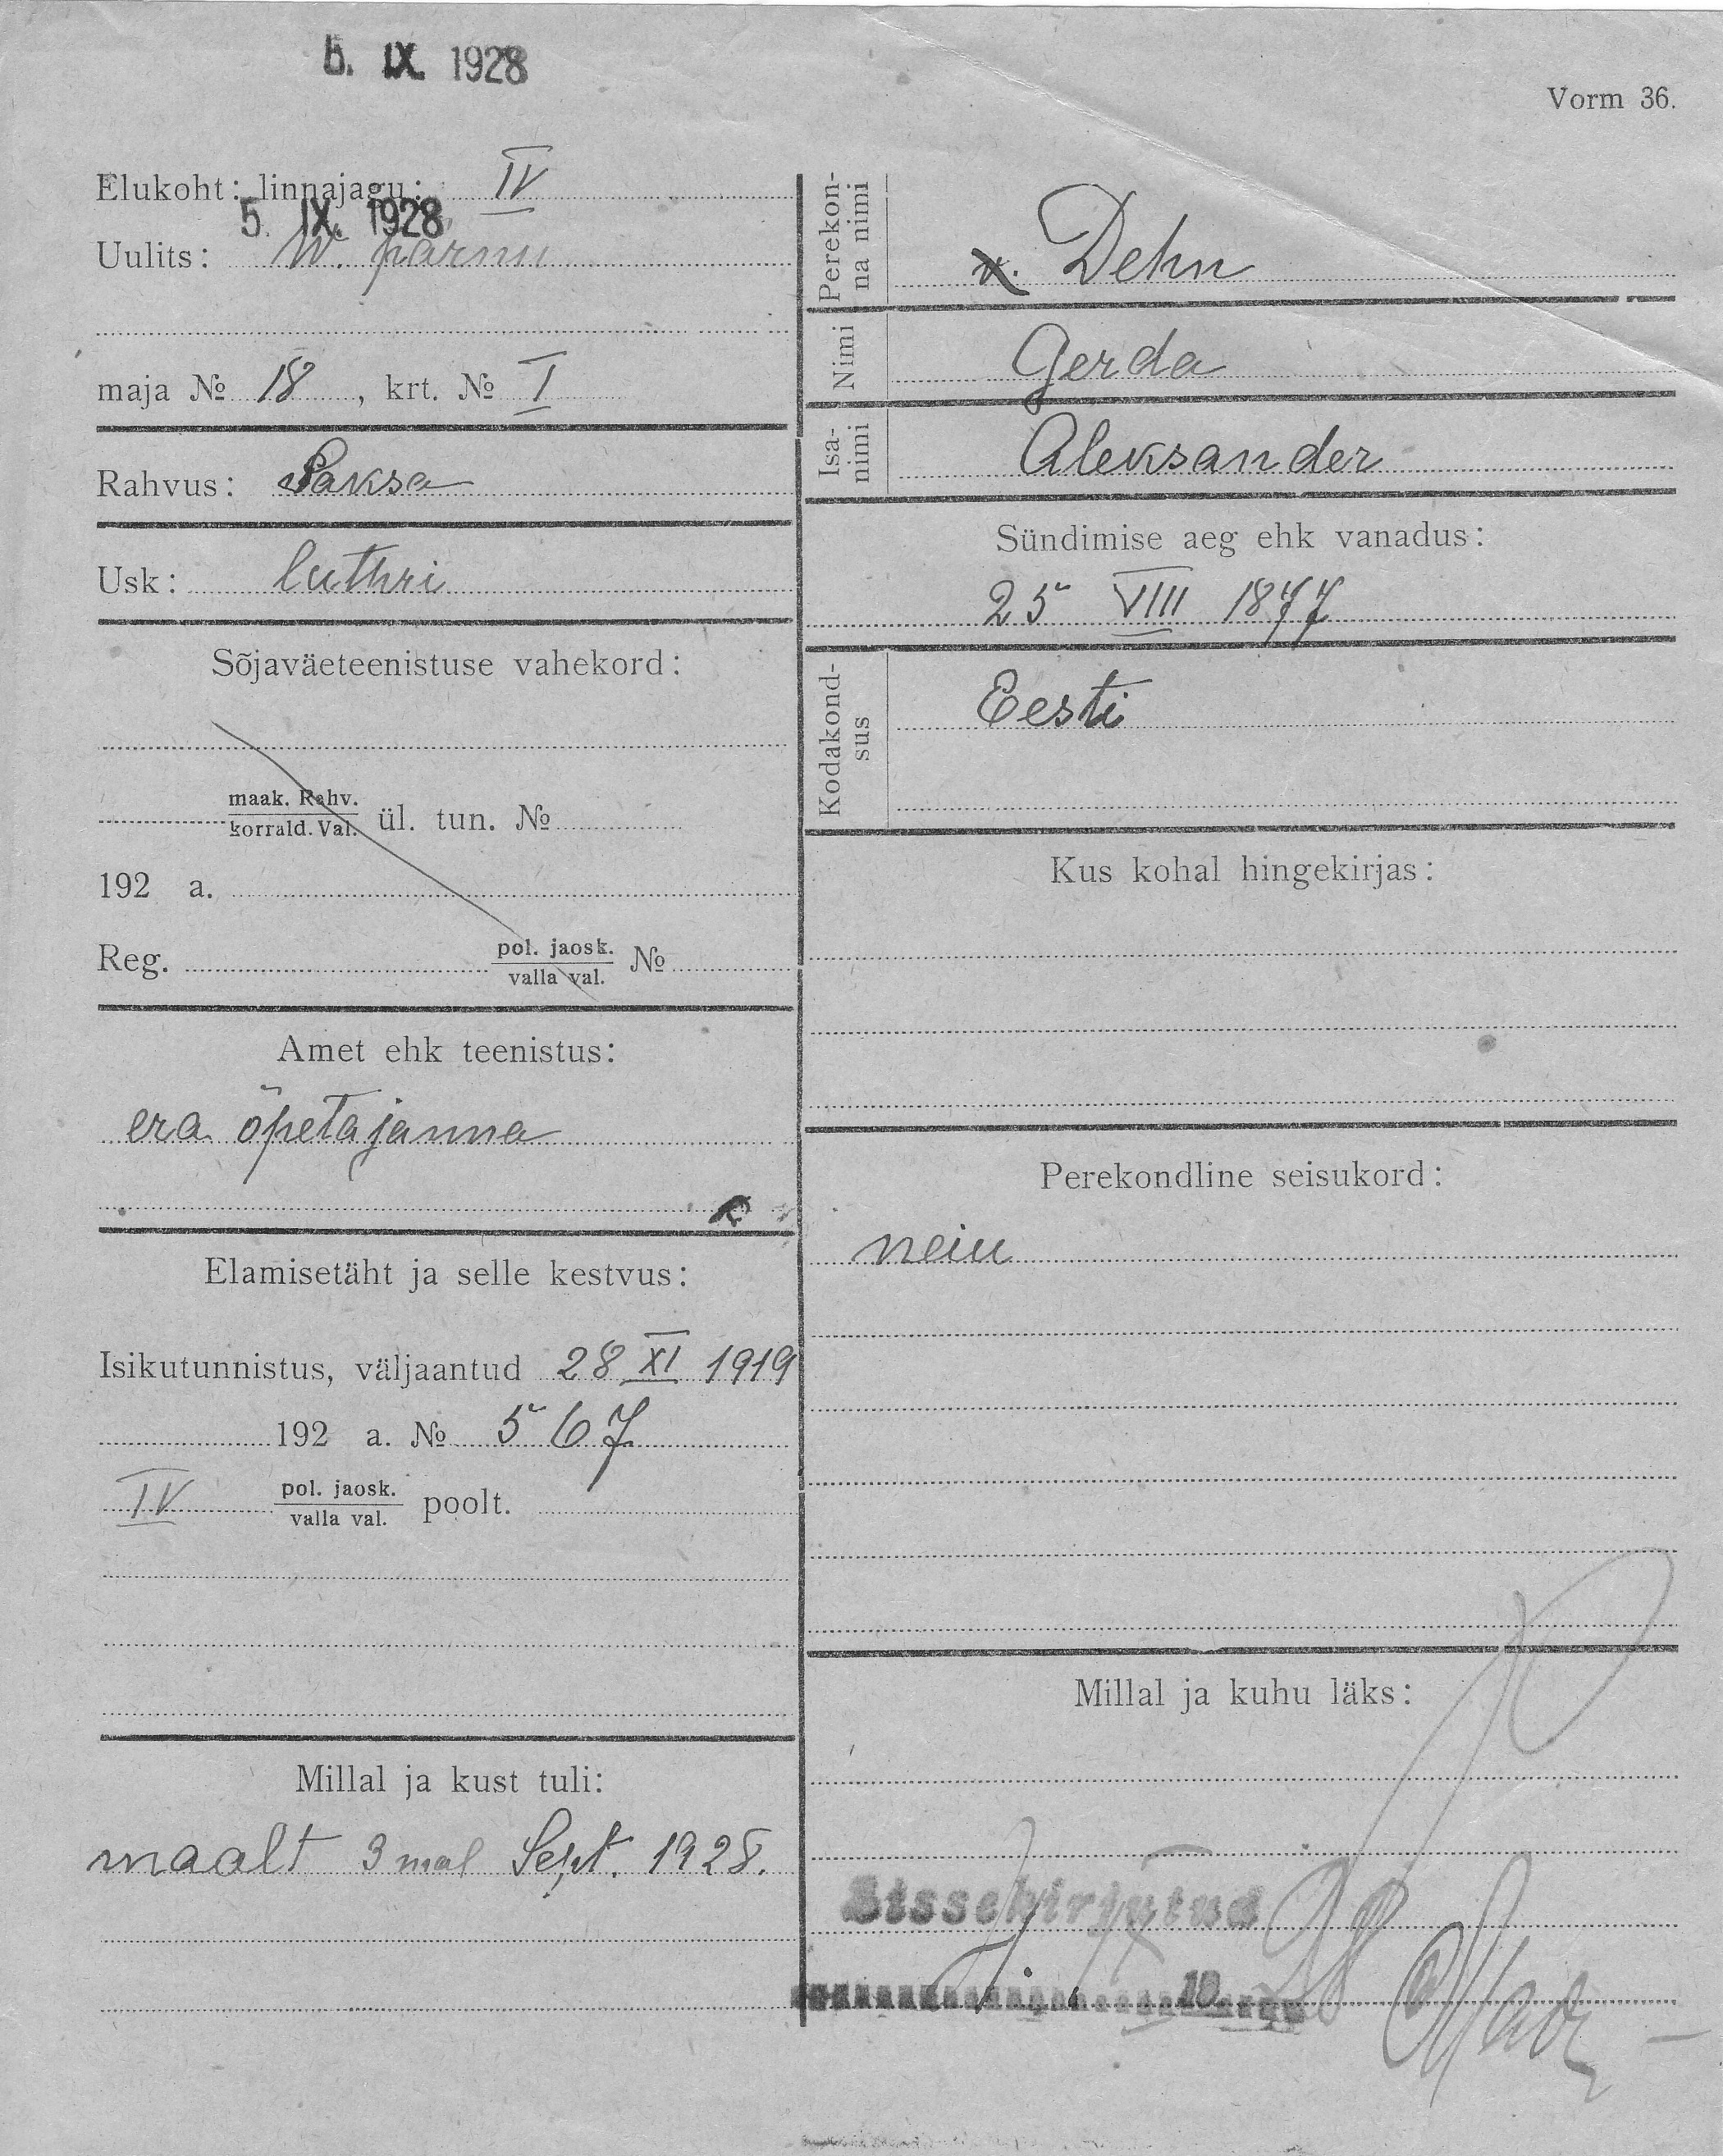 5. IX. 1928
Vorm 36.
Elukoht: linnajagu: IV
5. IX. 1928
Uulits: W. pärnu
maja № 18, krt. № I
Rahvus: Saksa
Usk: luthri
Sõjaväeteenistuse vahekord:
maak. Rahv.
korrald. Val. ül. tun. №
192 a.
Reg. pol. jaosk. №
valla val.
Amet ehk teenistus:
era õpetajanna
Elamisetäht ja selle kestvus:
Isikutunnistus, väljaantud 28 XI 1919
192 a. № 567
IV pol. jaosk. poolt.
valla val.
Millal ja kust tuli:
maalt 3mal Sept. 1928.
Perekon-
na nimi
v. Dehn
Nimi
Gerda
Isa-
nimi
Aleksander
Sündimise aeg ehk vanadus:
25 VIII 1877
Kodakond-
sus
Eesti
Kus kohal hingekirjas:
Perekondline seisukord:
neiu
Millal ja kuhu läks:
Sissekirjutud
19